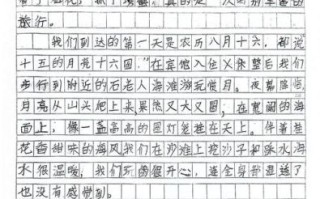 旅行。
我们到达的第一天是农历八月十六，都说
十五的月亮十六圆。在宾馆入住休整后我们
步行到附近的石老人海滩游玩赏月。夜幕降临，
月亮从山头爬上来，果然又大又圆，在宽阔的海
面上，像一盏高高的圆灯笼挂在天上。伴着桂
花香甜味的海风，我们在沙滩上挖沙子和踩水，海
水很温暖，我们玩得很开心，连全身都湿透了
也没有感觉到。